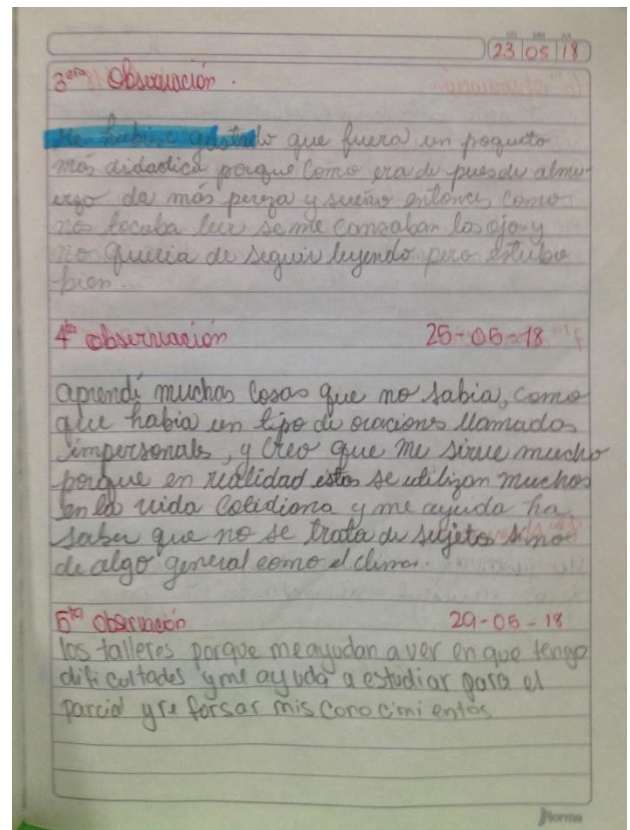 DD MM AA
23 05 18
3era Observación.
Me hubiese gustado que fuera un poquito
más didactica porque como era de pues de almu-
erzo da más pereza y sueño entonces como
nos tocaba leer se me cansaban los ojos y
no queria de seguir leyendo pero estubo
bien.
4ta observación 25-05-18
aprendí muchas cosas que no sabia, como
que habia un tipo de oraciones llamadas
impersonals, y creo que me sirve mucho
porque en realidad estas se utilizan muchos
en la vida cotidiana y me ayuda ha
saber que no se trata de sujetos sino
de algo general como el clima.
5ta observación 29-05-18
los talleres porque me ayudan a ver en que tengo
dificultades y me ayuda a estudiar para el
parcial y re forsar mis conocimientos
Norma